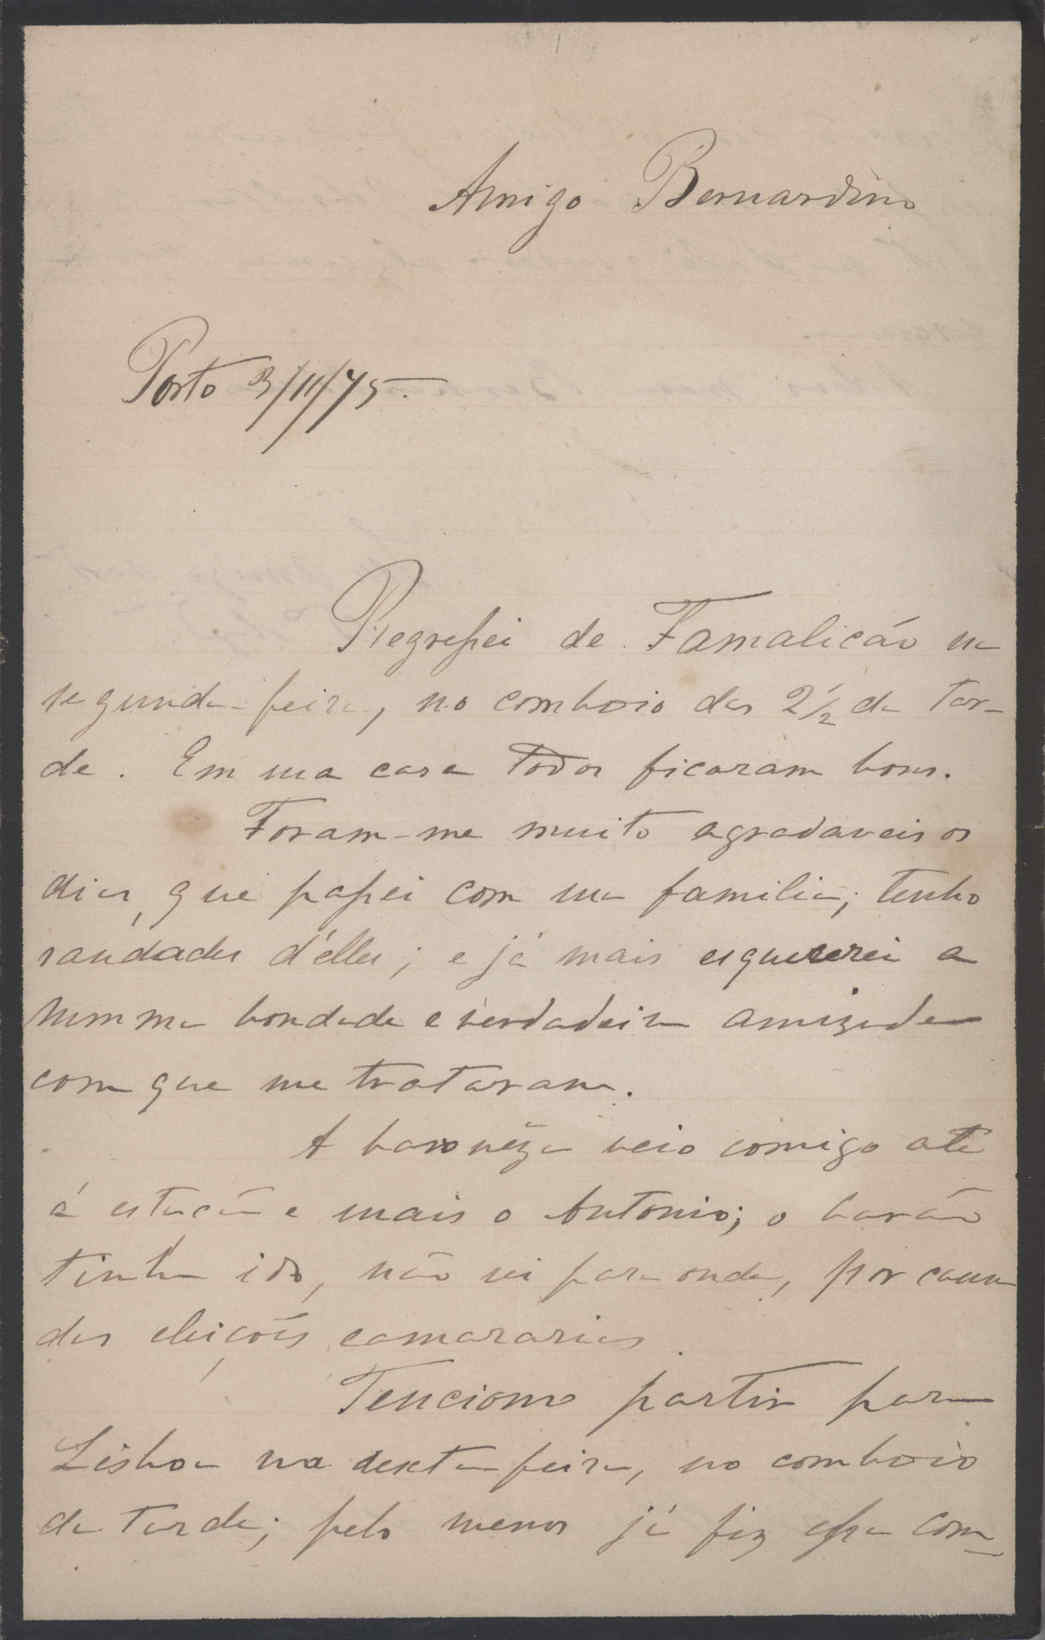 Amigo Bernardino
Porto 3/11/75.
Regressei de Famalicão na
segunda-feira, no comboio das 2 1/2 da tar-
de. Em sua casa todos ficaram bons.
Foram-me muito agradaveis os
dias, que passei com sua familia; tenho
saudades d'elles; e já mais esquecerei a
summa bondade e verdadeira amizade
com que me trataram.
A baronêza veio comigo até
á estação e mais o Antonio; o barão
tinha ido, não sei para onde, por causa
das eleições camararias.
Tenciono partir para
Lisboa na sexta-feira, no comboio
da tarde; pelo menos já fiz essa com-